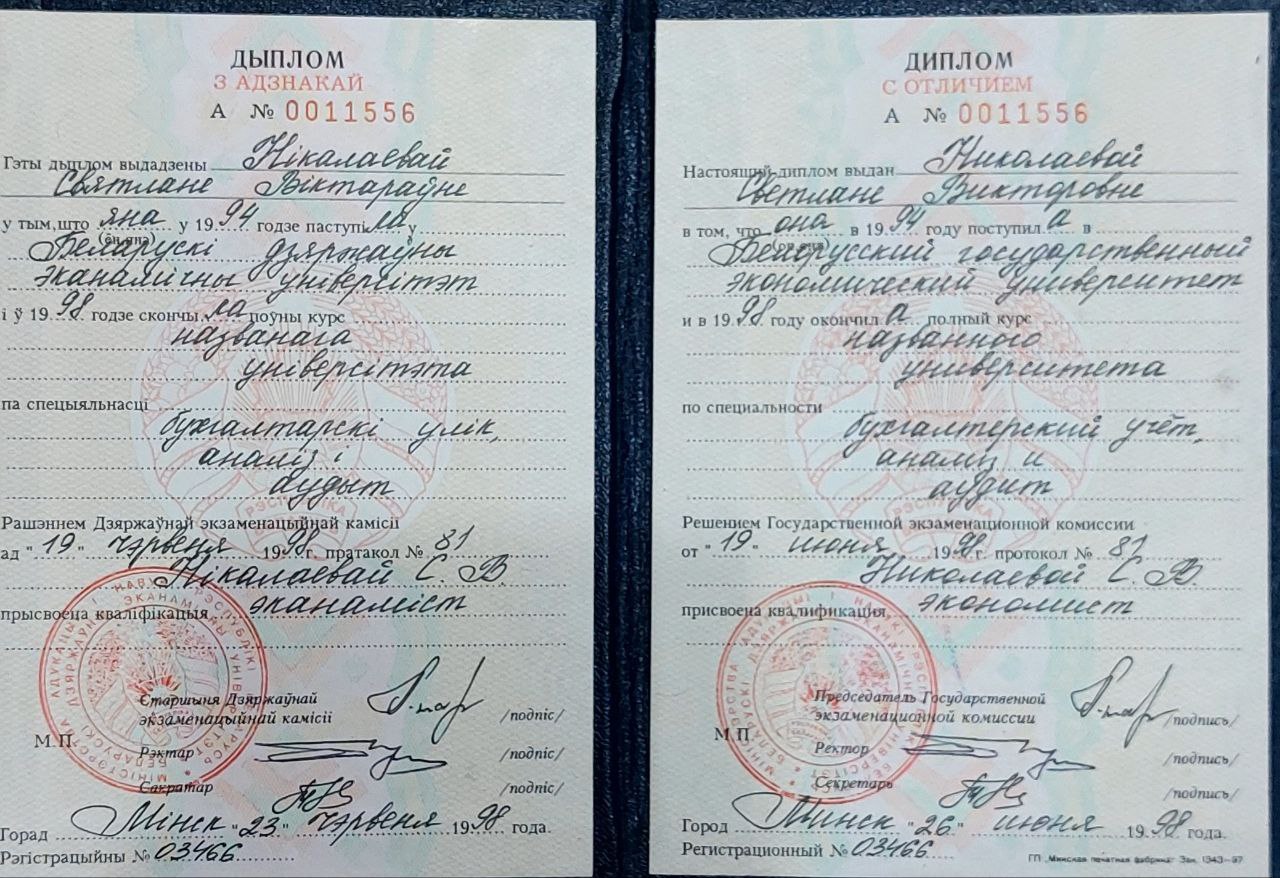 ДЫПЛОМ
З АДЗНАКАЙ
А № 0011556
Гэты дыплом выдадзены Нікалаевай
Святлане Віктараўне
у тым, што яна у 1994 годзе паступіла у
(ён, яна)
Беларускі дзяржаўны
эканамічны універсітэт
і ў 1998 годзе скончыла поўны курс
названага
універсітэта
па спецыяльнасці
бухгалтарскі улік,
аналіз і
аудыт
Рашэннем Дзяржаўнай экзаменацыйнай камісіі
ад "19" чэрвеня 1998 г. пратакол № 81
Нікалаевай С. В.
прысвоена кваліфікацыя эканаміст
Старшыня Дзяржаўнай
экзаменацыйнай камісіі /подпіс/
М.П.
Рэктар /подпіс/
Сакратар /подпіс/
Горад Мінск "23" чэрвеня 1998 года.
Рэгістрацыйны № 03466
ДИПЛОМ
С ОТЛИЧИЕМ
А № 0011556
Настоящий диплом выдан Николаевой
Светлане Викторовне
в том, что она в 1994 году поступила в
(он, она)
Белорусский государственный
экономический университет
и в 1998 году окончила полный курс
названного
университета
по специальности
бухгалтерский учёт,
анализ и
аудит
Решением Государственной экзаменационной комиссии
от "19" июня 1998 г. протокол № 81
Николаевой С. В.
присвоена квалификация экономист
Председатель Государственной
экзаменационной комиссии /подпись/
М.П.
Ректор /подпись/
Секретарь /подпись/
Город Минск "26" июня 1998 года.
Регистрационный № 03466
ГП „Минская печатная фабрика" Зак. 1343—97